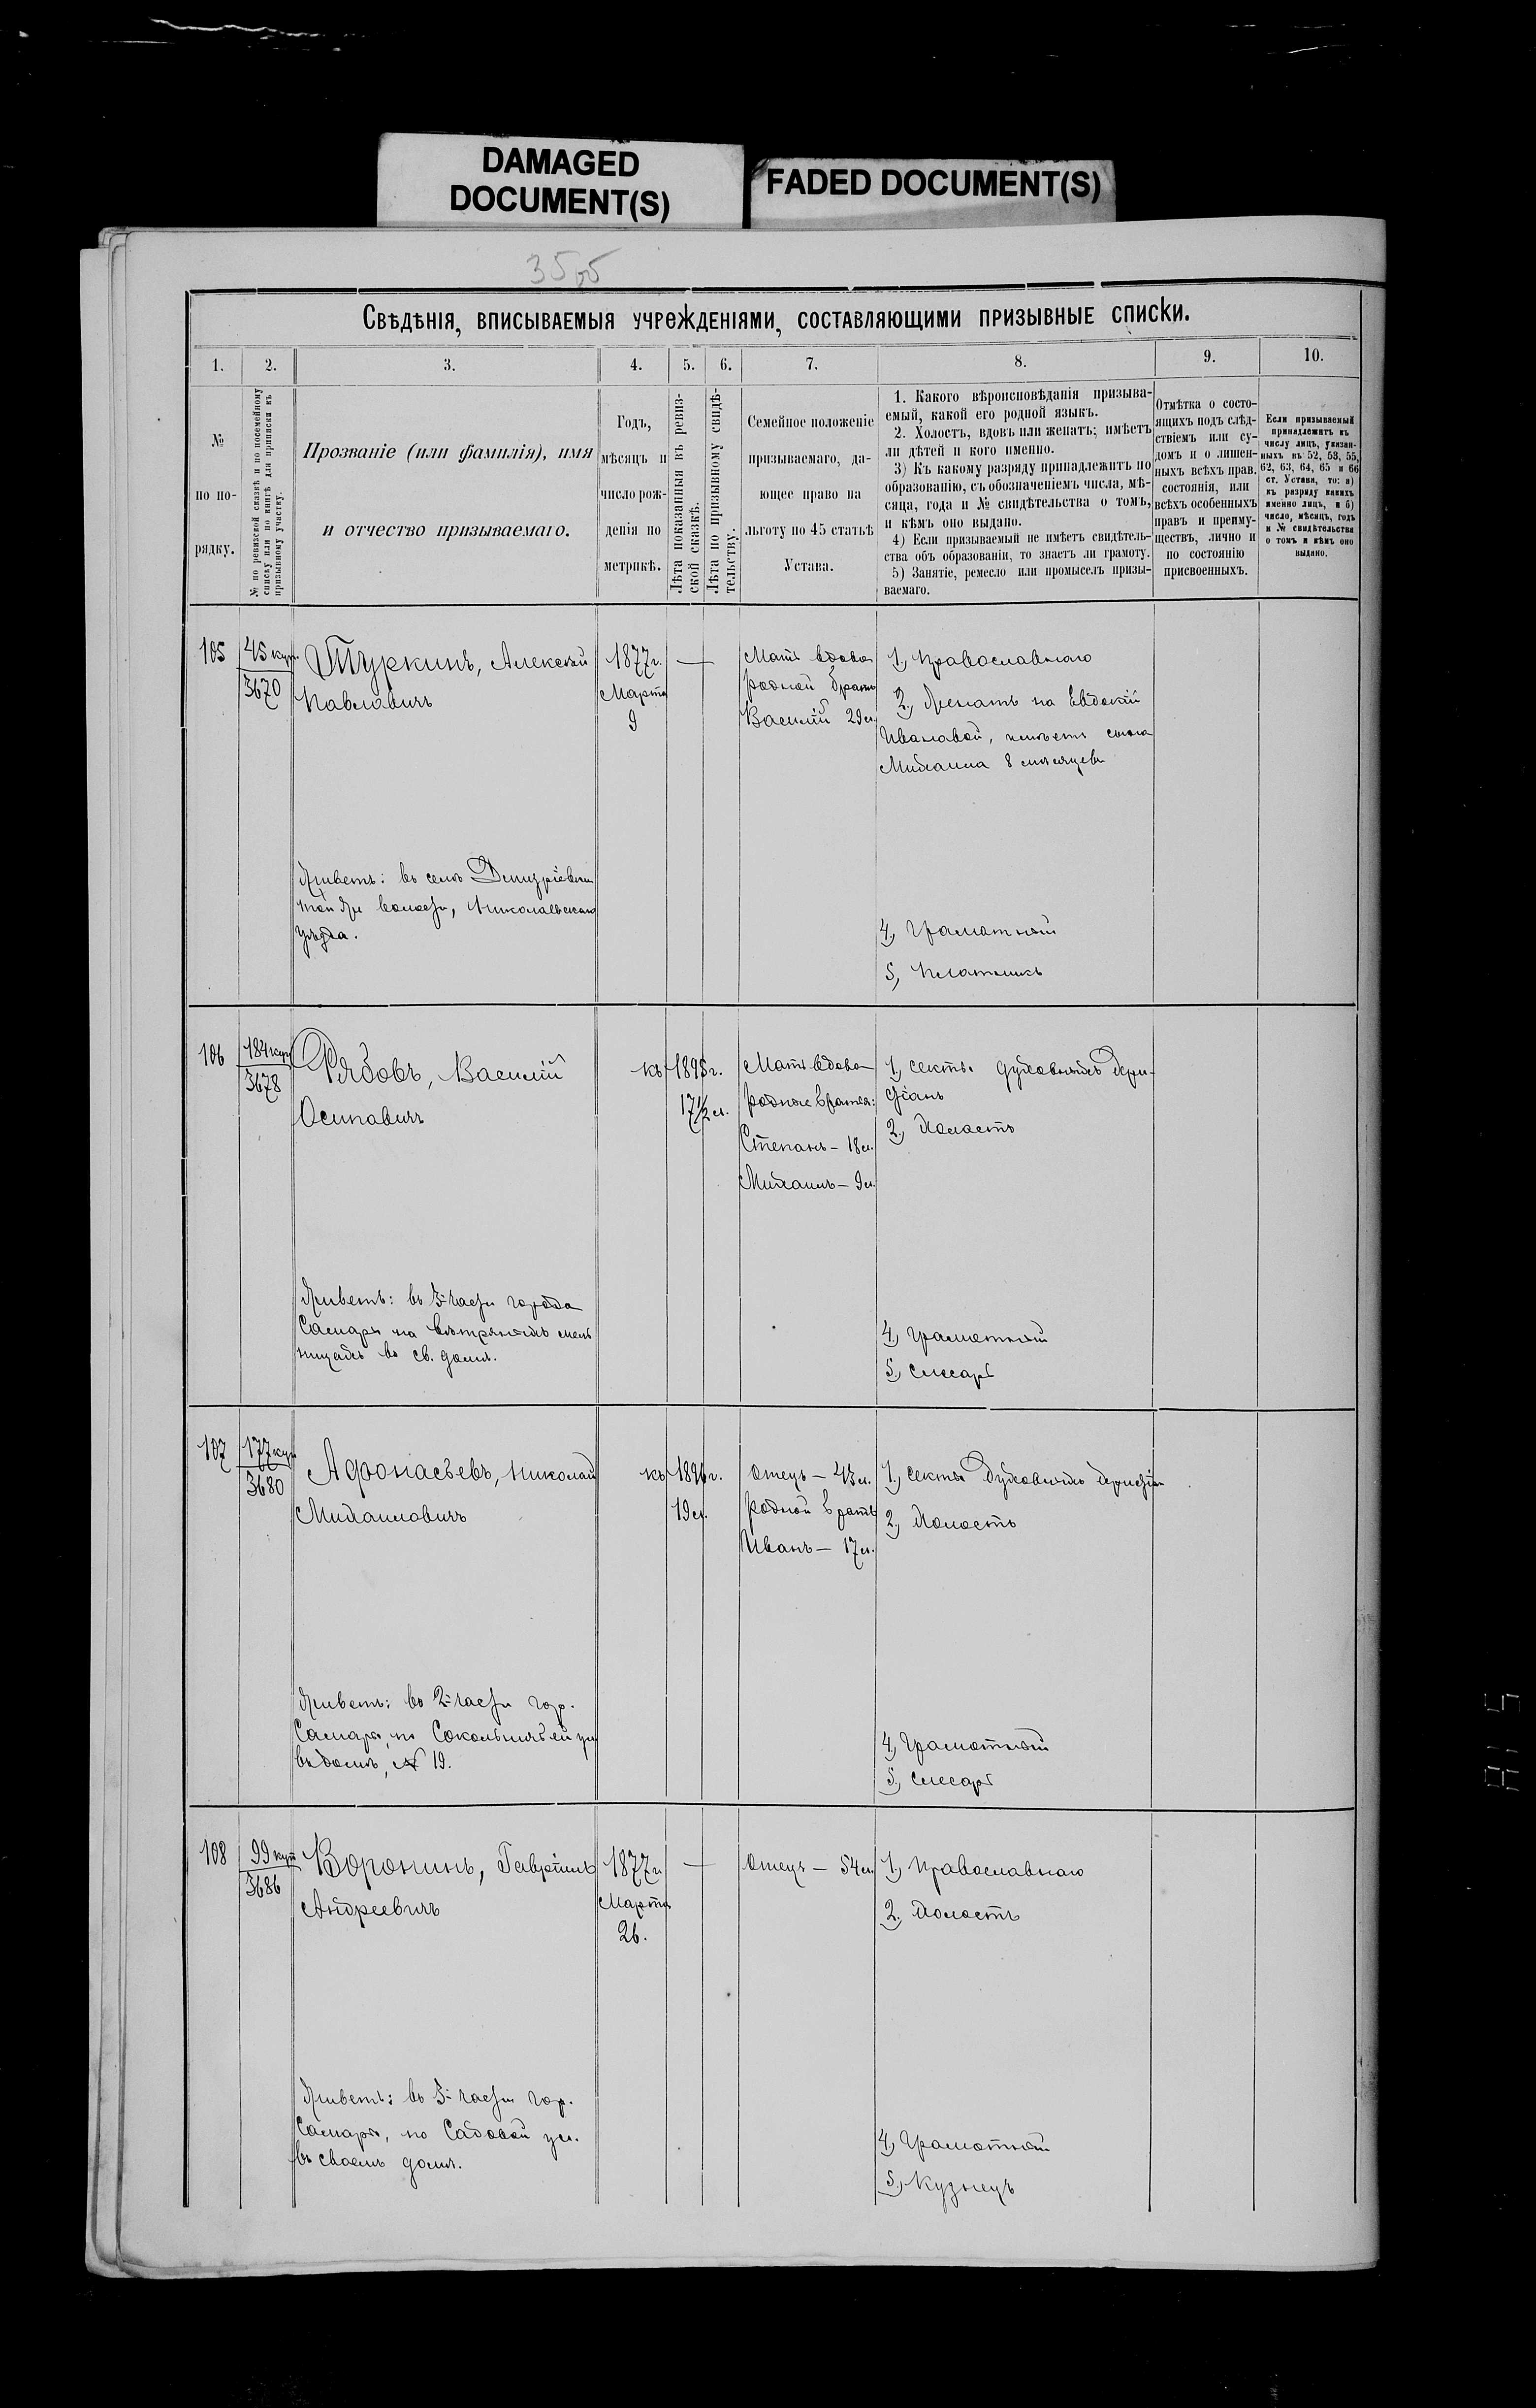 DAMAGED
DOCUMENT(S)
FADED DOCUMENT(S)
Свѣдѣнія, вписываемыя учрежденіями, составляющими призывные списки.
1.
2.
3.
4.
5.
6.
7.
8.
9.
10.
№
по по-
рядку.
№ по ревизской сказкѣ и по посемейному
списку или по книгѣ для приписки къ
призывному участку.
Прозваніе (или фамилія), имя
и отчество призываемаго.
Годъ,
мѣсяцъ и
число рож-
денія по
метрикѣ.
Лѣта показанныя въ ревиз-
ской сказкѣ.
Лѣта по призывному свидѣ-
тельству.
Семейное положеніе
призываемаго, да-
ющее право на
льготу по 45 статьѣ
Устава.
1. Какого вѣроисповѣданія призыва-
емый, какой его родной языкъ.
2. Холостъ, вдовъ или женатъ; имѣетъ
ли дѣтей и кого именно.
3) Къ какому разряду принадлежитъ по
образованію, съ обозначеніемъ числа, мѣ-
сяца, года и № свидѣтельства о томъ,
и кѣмъ оно выдано.
4) Если призываемый не имѣетъ свидѣтель-
ства объ образованіи, то знаетъ ли грамоту.
5) Занятіе, ремесло или промыселъ призы-
ваемаго.
Отмѣтка о состо-
ящихъ подъ слѣд-
ствіемъ или су-
домъ и о лишен-
ныхъ всѣхъ прав.
состоянія, или
всѣхъ особенныхъ
правъ и преиму-
ществъ, лично и
по состоянію
присвоенныхъ.
Если призываемый
принадлежитъ къ
числу лицъ, указан-
ныхъ въ 52, 53, 55,
62, 63, 64, 65 и 66
ст. Устава, то: а)
къ разряду какихъ
именно лицъ, и б)
число, мѣсяцъ, годъ
и № свидѣтельства
о томъ и кѣмъ оно
выдано.
105
45
3670
Туркинъ, Алексѣй
Павловичъ
Живетъ: въ селѣ
волости, Николаевскаго
уѣзда.
1877 г.
Марта
9
—
Мать вдова
родной братъ
Василій 29 л.
1, Православнаго
2, Женатъ на Евдокіи
Ивановой, имѣетъ сына
Михаила 8 мѣсяцевъ
4, Грамотный
5, Плотникъ
106
184
3678
Рябовъ, Василій
Осиповичъ
Живетъ: въ 3й части города
Самары на вѣтряныхъ мель
ницахъ въ св. домѣ.
къ 1895 г.
17 1/2 л.
Мать вдова
родные братья:
Степанъ — 18 л.
Михаилъ — 9 л.
1, секты духовныхъ
2, Холостъ
4, Грамотный
5, Слесарь
107
177
3680
Афонасьевъ, Николай
Михаиловичъ
Живетъ: во 2й части гор.
Самары, по ул
въ домѣ, № 19.
къ 1896 г.
19 л.
Отецъ — 43 л.
родной братъ
Иванъ — 17 л.
1, Секты Духовныхъ
2, Холостъ
4, Грамотный
5, Слесарь
108
99
3686
Воронинъ, Гавріилъ
Андреевичъ
Живетъ: въ 3й части гор.
Самары, по Садовой ул.
въ своемъ домѣ.
1877 г.
Марта
26.
—
Отецъ — 54 л.
1, Православнаго
2, Холостъ
4, Грамотный
5, Кузнецъ